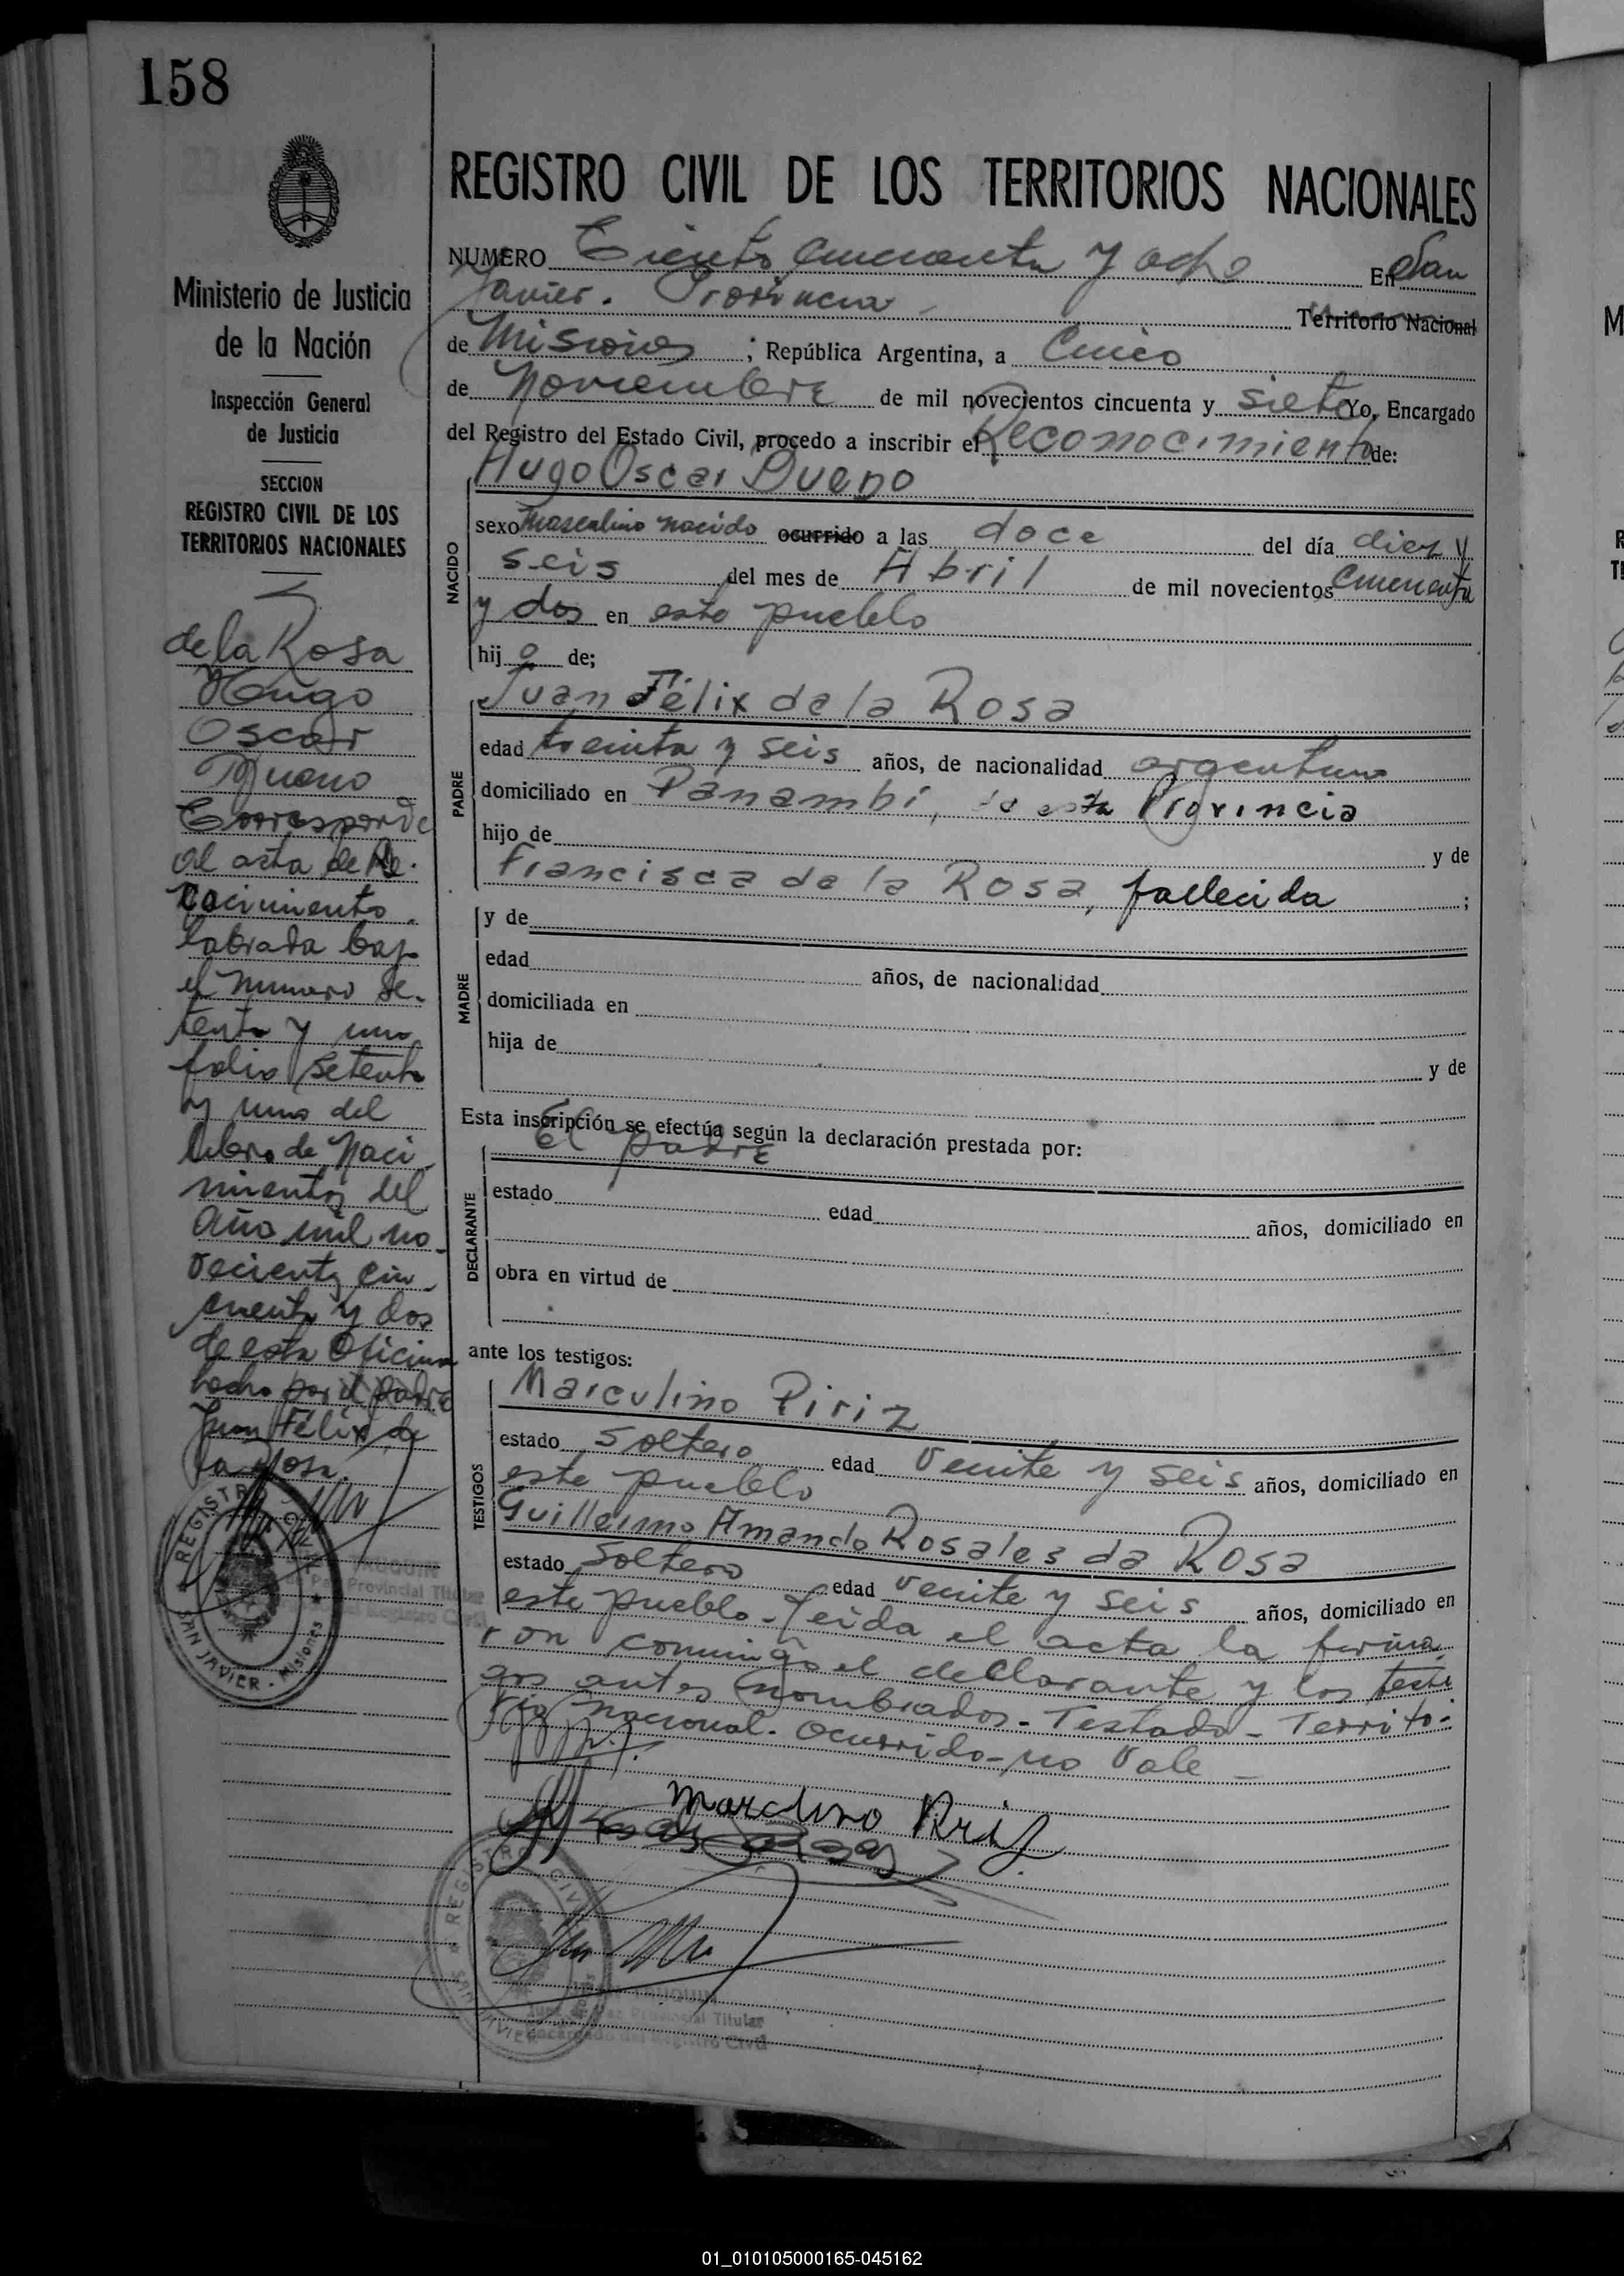 158
Ministerio de Justicia
de la Nación
Inspección General
de Justicia
SECCION
REGISTRO CIVIL DE LOS
TERRITORIOS NACIONALES
de la Rosa
Hugo
Oscar
Bueno
Corresponde
al acta de Na-
cimiento
labrada bajo
el número se-
tenta y uno
folio setenta
y uno del
libro de Naci-
mientos del
año mil no-
vecientos cin-
cuenta y dos
de esta Oficina
hecho por el padre
Juan Félix de
la Rosa.
REGISTRO CIVIL
SAN JAVIER - Misiones
REGISTRO CIVIL DE LOS TERRITORIOS NACIONALES
NUMERO Ciento cincuenta y ocho En San
Javier. Provincia Territorio Nacional
de Misiones ; República Argentina, a Cinco
de Noviembre de mil novecientos cincuenta y siete Yo, Encargado
del Registro del Estado Civil, procedo a inscribir el Reconocimiento de:
Hugo Oscar Bueno
NACIDO
sexo masculino nacido ocurrido a las doce del día diez y
seis del mes de Abril de mil novecientos cincuenta
y dos en este pueblo
hij o de;
PADRE
Juan Félix de la Rosa
edad treinta y seis años, de nacionalidad argentino
domiciliado en Panambí, de esta Provincia
hijo de y de
Francisca de la Rosa, fallecida ;
MADRE
y de
edad años, de nacionalidad
domiciliada en
hija de y de
Esta inscripción se efectúa según la declaración prestada por:
El padre
DECLARANTE
estado edad años, domiciliado en
obra en virtud de
ante los testigos:
TESTIGOS
Marculino Piriz
estado Soltero edad veinte y seis años, domiciliado en
este pueblo
Guillermo Amando Rosales da Rosa
estado Soltero edad veinte y seis años, domiciliado en
este pueblo - Leída el acta la firma-
ron conmigo el declarante y los testi
gos antes nombrados - Testado - Territo-
rio nacional - Ocurrido - no vale -
Marculino Piriz
REGISTRO CIVIL
SAN JAVIER
Juez de Paz Provincial Titular
Encargado del Registro Civil
01_010105000165-045162